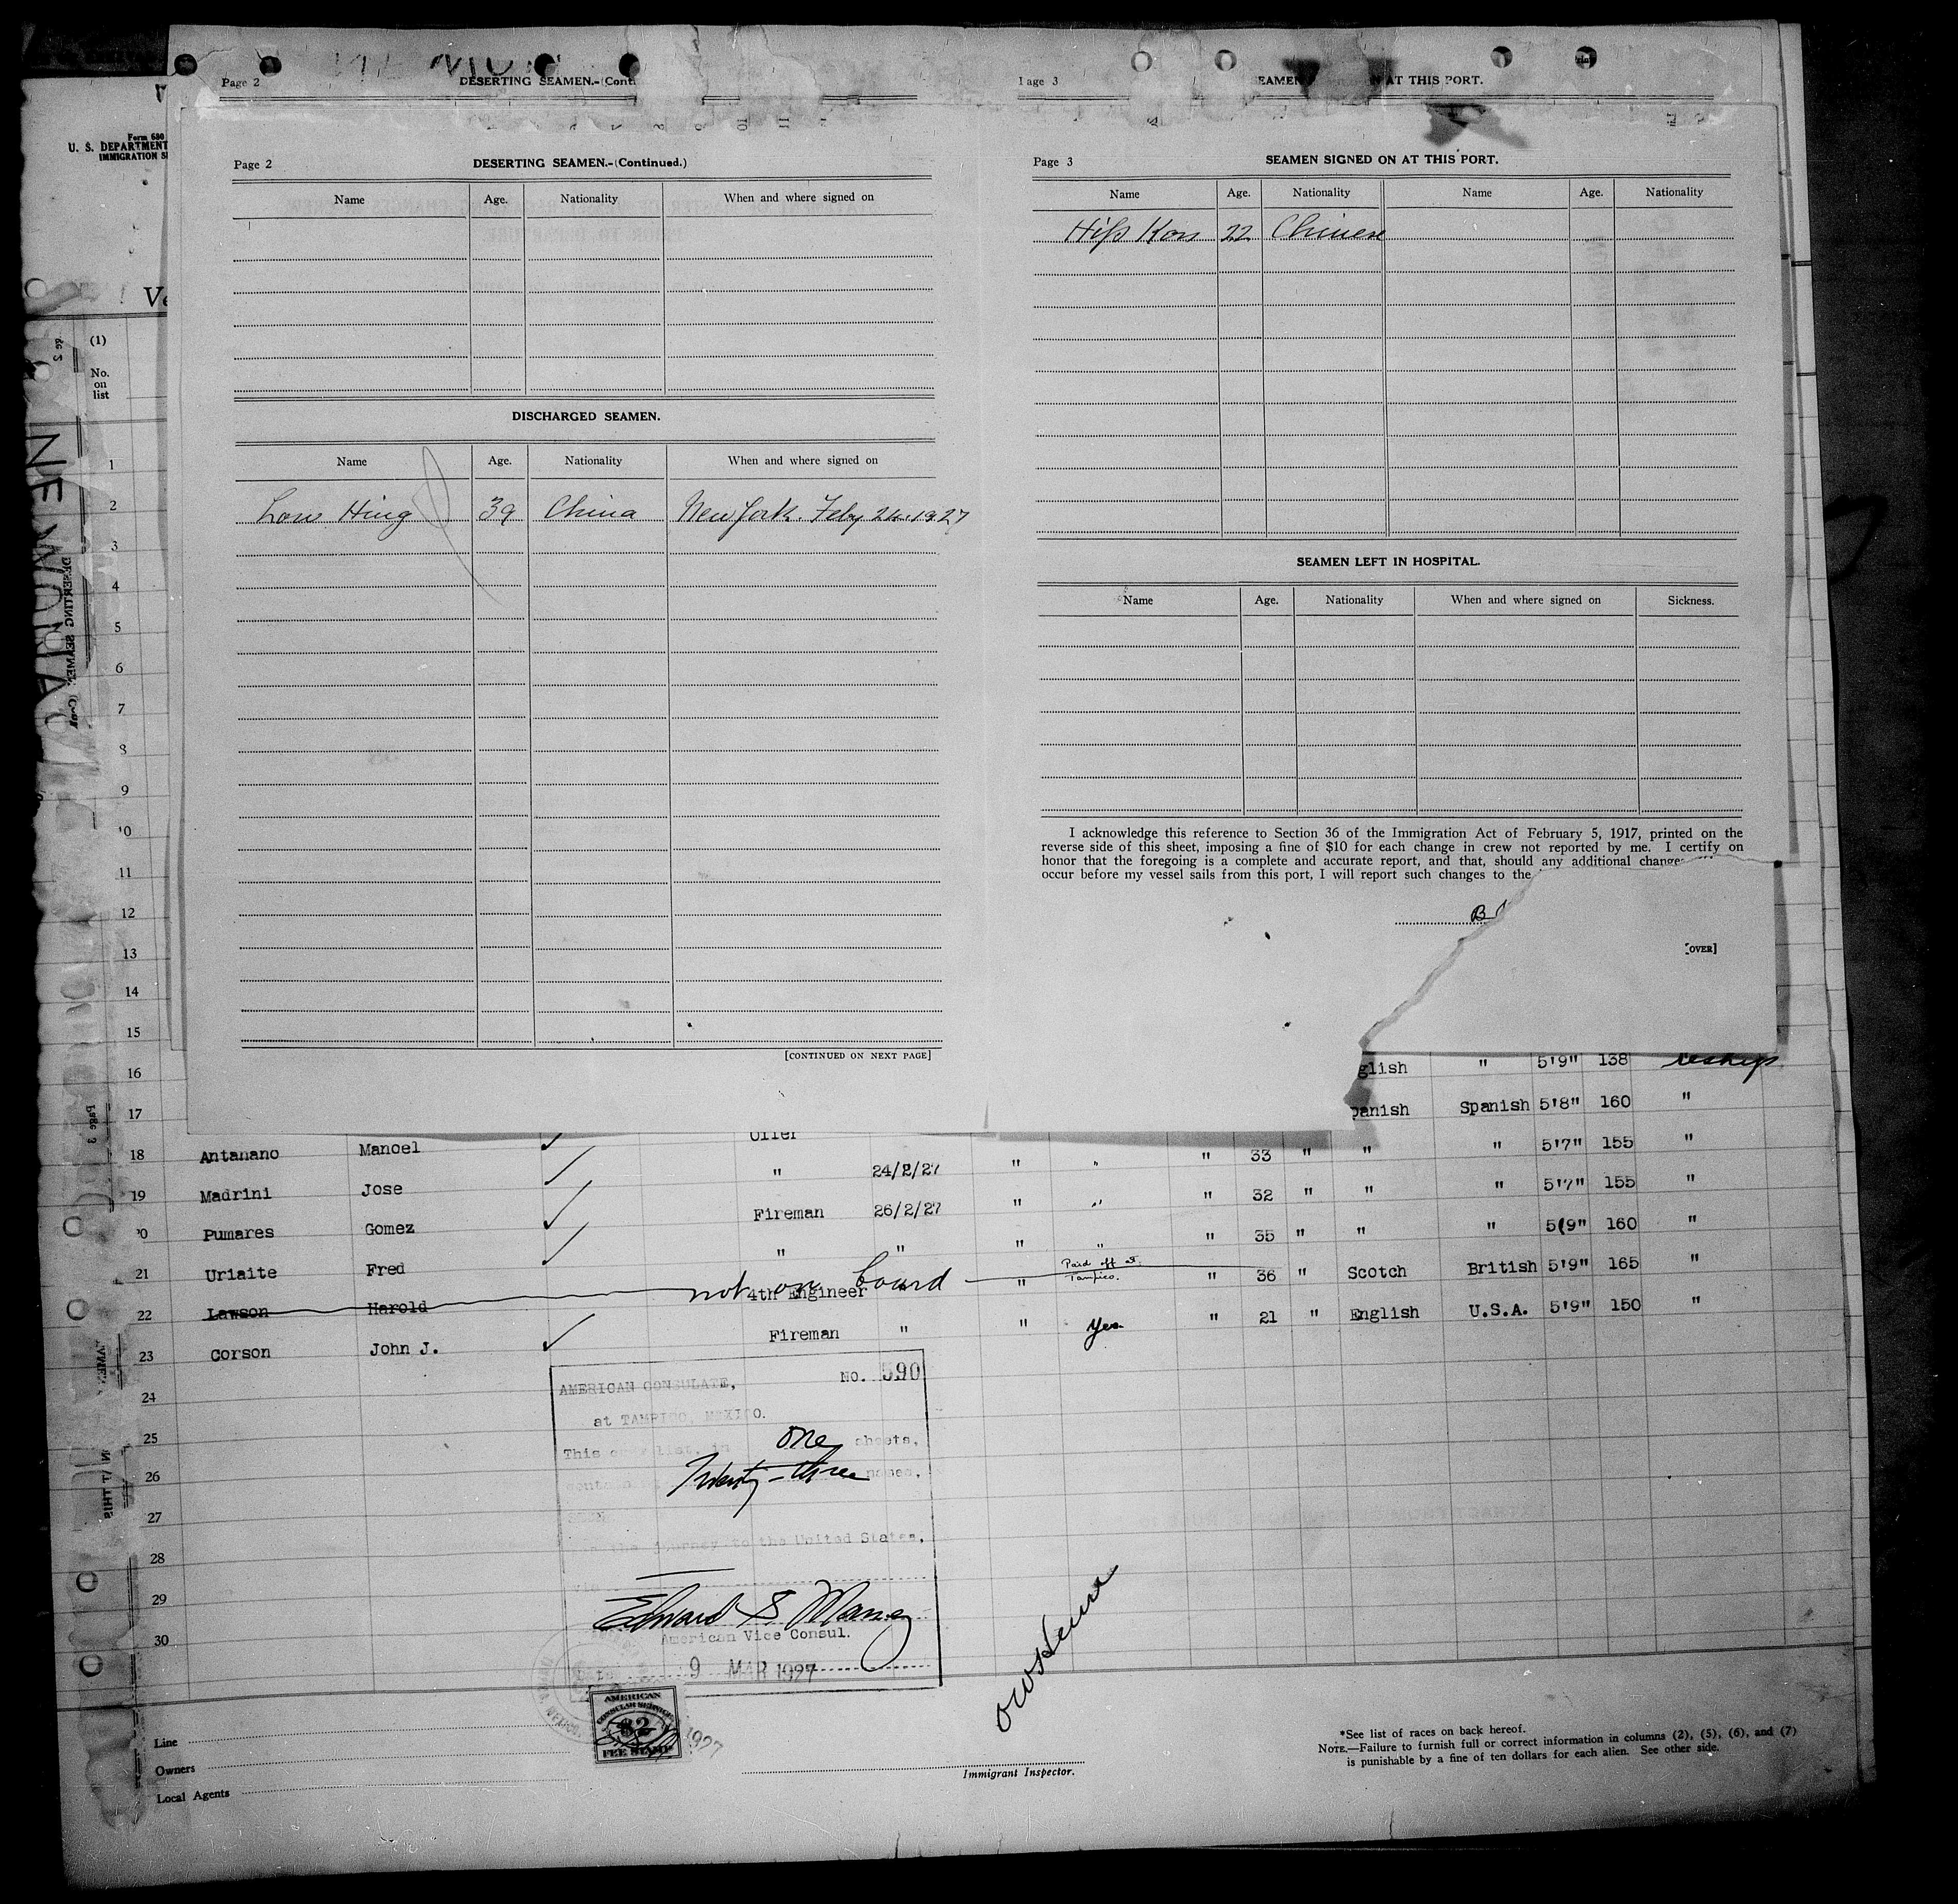 Page 2
DESERTING SEAMEN.-(Cont
Page 3
AT THIS PORT.
Form 680
U. S. DEPARTMENT
IMMIGRATION
Page 2
DESERTING SEAMEN.-(Continued.)
Name Age. Nationality When and where signed on
DISCHARGED SEAMEN.
Name Age. Nationality When and where signed on
Low Hing 39 China New York. Feby 24. 1927
[CONTINUED ON NEXT PAGE]
Page 3
SEAMEN SIGNED ON AT THIS PORT.
Name Age. Nationality Name Age. Nationality
22 Chinese
SEAMEN LEFT IN HOSPITAL.
Name Age. Nationality When and where signed on Sickness.
I acknowledge this reference to Section 36 of the Immigration Act of February 5, 1917, printed on the
reverse side of this sheet, imposing a fine of $10 for each change in crew not reported by me. I certify on
honor that the foregoing is a complete and accurate report, and that, should any additional change
occur before my vessel sails from this port, I will report such changes to the
B
[OVER]
(1)
No.
on
list
1
2
3
4
5
6
7
8
9
10
11
12
13
14
15
16 glish " 5'9" 138
17 panish Spanish 5'8" 160 "
18 Antanano Manoel Oiler " " " 33 " " " 5'7" 155 "
19 Madrini Jose " 24/2/27 " " " 32 " " " 5'7" 155 "
20 Pumares Gomez Fireman 26/2/27 " " " 35 " " " 5(9" 160 "
21 Uriaite Fred " " " "
22 Lawson Harold 4th Engineer " " " 36 " Scotch British 5'9" 165 "
not on board
Paid off at
Tampico.
23 Corson John J. Fireman " " Yes " 21 " English U.S.A. 5'9" 150 "
24
25
26
27
28
29
30
AMERICAN CONSULATE, NO. 590
at TAMPICO, MEXICO.
This crew list, in one sheets,
Twenty-three names,
the journey to the United States,
Edward S. Maney
American Vice Consul.
Date 9 MAR 1927
AMERICAN
CONSULAR SERVICE
$2
FEE STAMP
1927
Line
Owners
Local Agents
Immigrant Inspector.
*See list of races on back hereof.
NOTE.—Failure to furnish full or correct information in columns (2), (5), (6), and (7)
is punishable by a fine of ten dollars for each alien. See other side.